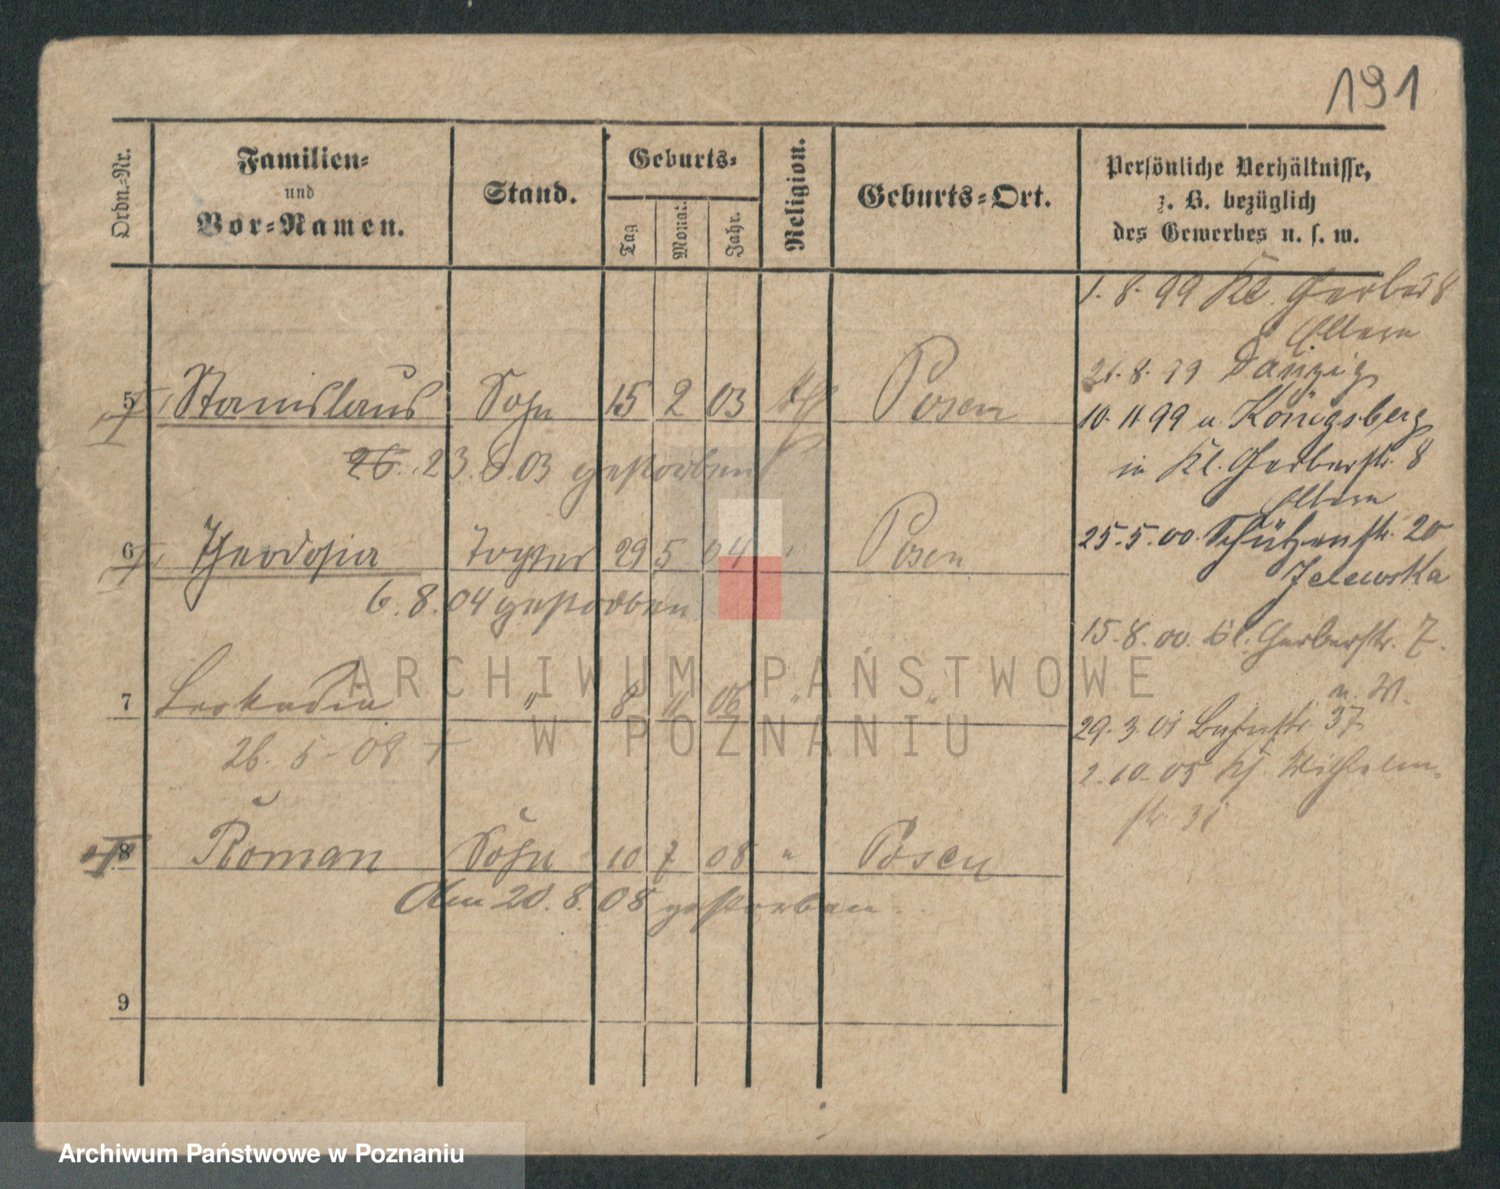 191
Ordn.-Nr.
Familien-
und
Vor-Namen.
Stand.
Geburts-
Tag
Monat.
Jahr.
Religion.
Geburts-Ort.
Persönliche Verhältnisse,
z. B. bezüglich
des Gewerbes u. s. w.
1. 8. 99 Kl. Gerberstr 8
Eltern
21. 8. 99 Danzig
10. 11 99 u. Königsberg
in Kl. Gerberstr. 8
Eltern
25. 5. 00. Schützenstr. 20
Zelewska
15. 8. 00. Kl. Gerberstr. 7.
29. 3 01 37
2. 10. 05 Wilhelm-
str. 31
5 Stanislaus Sohn 15 2 03 kth Posen
26. 23. 6. 03 gestorben
6 Theodosia Tochter 29 5 04 Posen
6. 8. 04 gestorben
7 Leokadia " 8 11 06 " "
26. 5 - 08 +
8 Roman Sohn 10 7 08 " Posen
Am 20. 8. 08 gestorben.
9
ARCHIWUM PAŃSTWOWE
W POZNANIU
Archiwum Państwowe w Poznaniu